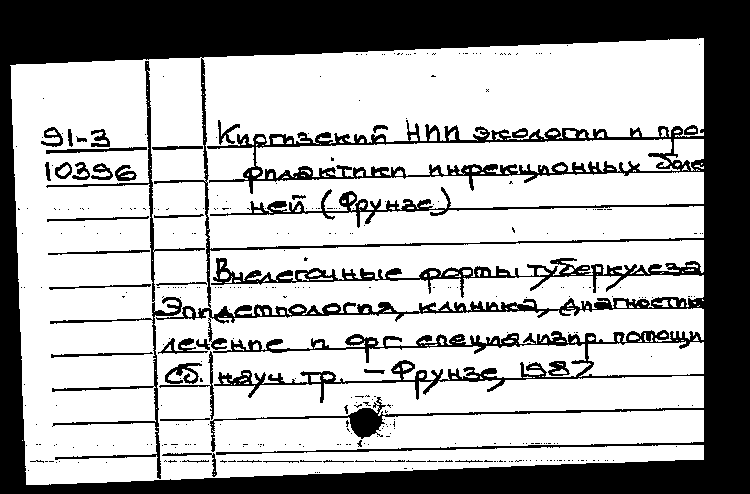 91-3 Киргизский НИИ экологии и про-
10396 филактики инфекционных боле
ней (Фрунзе)
Внелегочные формы туберкулеза
Эпидемиология, клиника, диагностика
лечение и орг. специализир. помощи
Сб. науч. тр. – Фрунзе, 1987